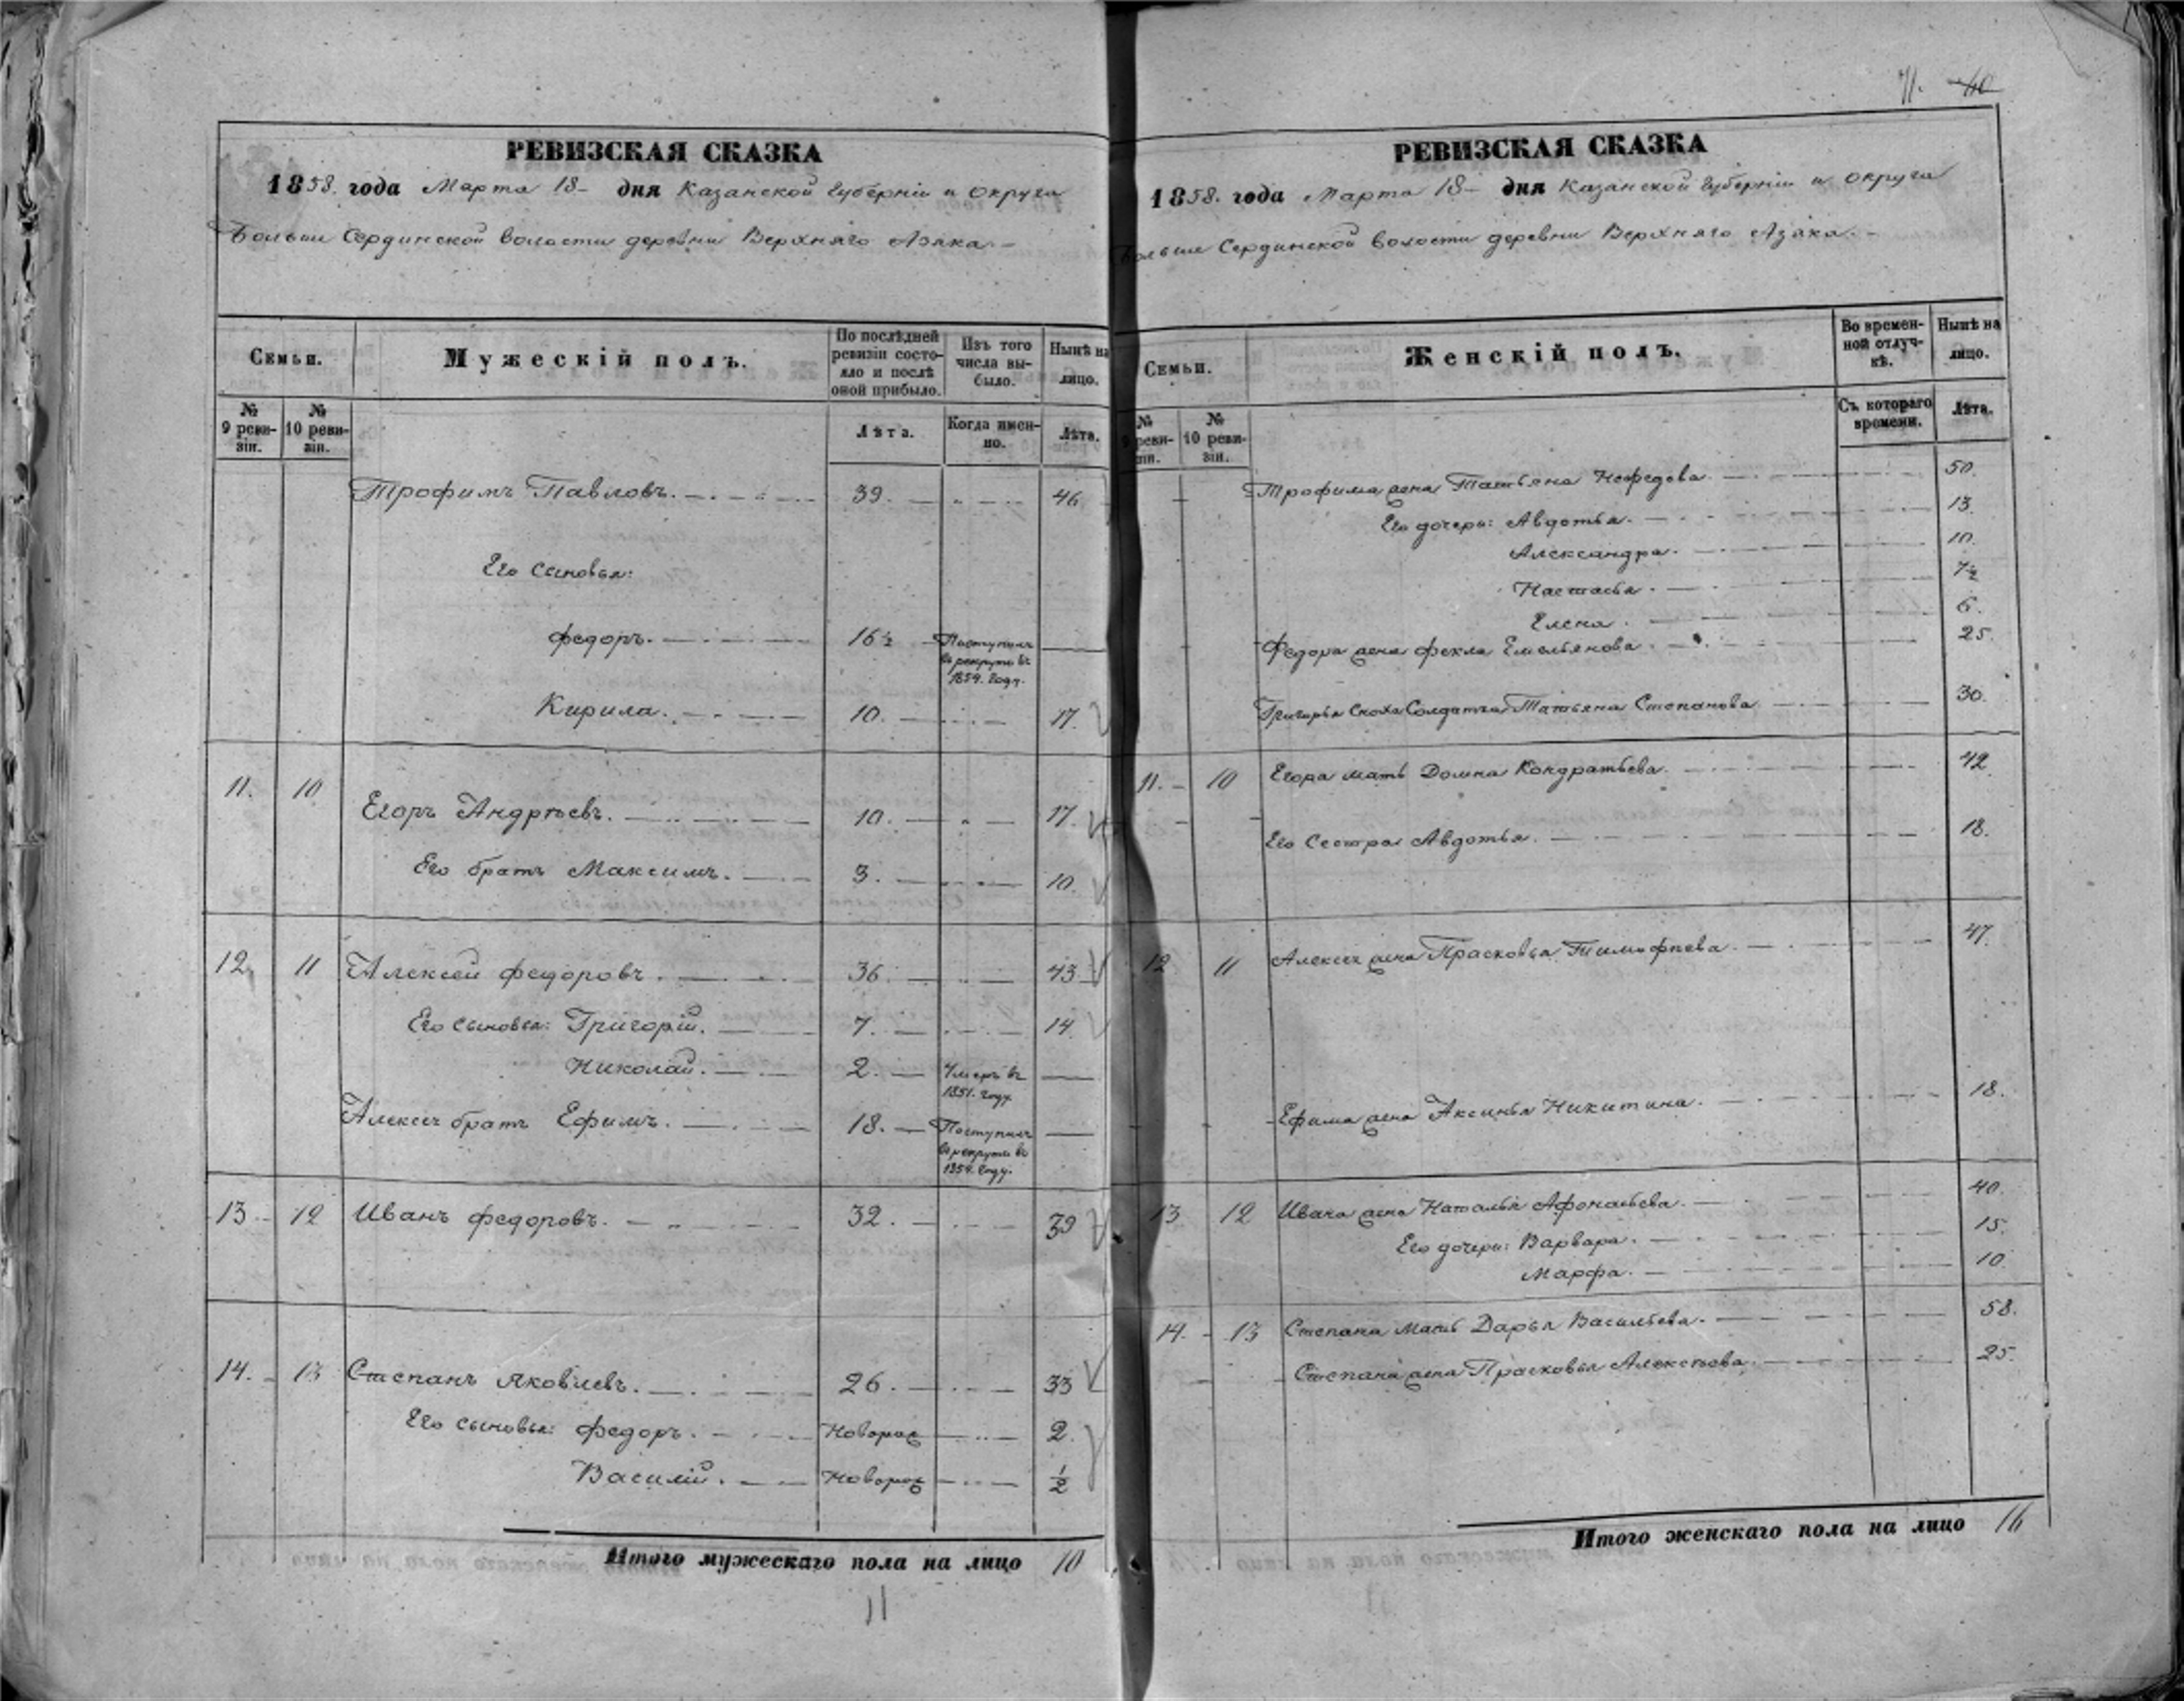 71. 40
РЕВИЗСКАЯ СКАЗКА
1858. года Марта 18 дня Казанской Губерніи и округа
Больше Сердинской волости деревни Верхняго Азяка.
Семьи.
Мужескій полъ.
По послѣдней ревизіи состояло и послѣ оной прибыло.
Изъ того числа выбыло.
Нынѣ на лицо.
№ 9 ревизіи.
№ 10 ревизіи.
Лѣта.
Когда именно.
Лѣта.
Трофимъ Павловъ. 39. 46
Его сыновья:
Федоръ. 16½ Поступилъ въ рекруты въ 1854. году.
Кирила. 10. 17.
11. 10 Егоръ Андрѣевъ. 10. 17.
Его братъ Максимъ. 3. 10.
12. 11 Алексей Федоровъ. 36. 43
Его сыновья: Григорій. 7. 14.
Николай. 2. Умеръ въ 1851. году.
Алексея братъ Ефимъ. 18. Поступилъ в рекруты въ 1854. году.
13 12 Иванъ Федоровъ. 32. 39
14. 13 Степанъ Яковлевъ. 26. 33
Его сыновья: Федоръ. Новорож 2.
Василій. Новорож ½
Итого мужескаго пола на лицо 10
11
РЕВИЗСКАЯ СКАЗКА
1858. года Марта 18 дня Казанской Губерніи и округа
Больше Сердинской волости деревни Верхняго Азяка.
Семьи.
Женскій полъ.
Во временной отлучкѣ.
Нынѣ на лицо.
№ 9 ревизіи.
№ 10 ревизіи.
Съ котораго времени.
Лѣта.
Трофима жена Татьяна Нефедова. 50.
Его дочери: Авдотья. 13.
Александра. 10.
Настасья. 7½
Елена. 6.
Федора жена Фекла Емельянова. 25.
Григорья сноха Солдатка Татьяна Степанова 30.
11. 10 Егора мать Домна Кондратьева. 42
Его Сестра Авдотья. 18.
12 11 Алексея жена Прасковья Тимофѣева. 47.
Ефима жена Аксинья Никитина. 18.
13 12 Ивана жена Наталья Афонасьева. 40.
Его дочери: Варвара. 15.
Марфа. 10.
14. 13 Степана мать Дарья Васильева. 58.
Степана жена Прасковья Алексѣева. 25.
Итого женскаго пола на лицо 16